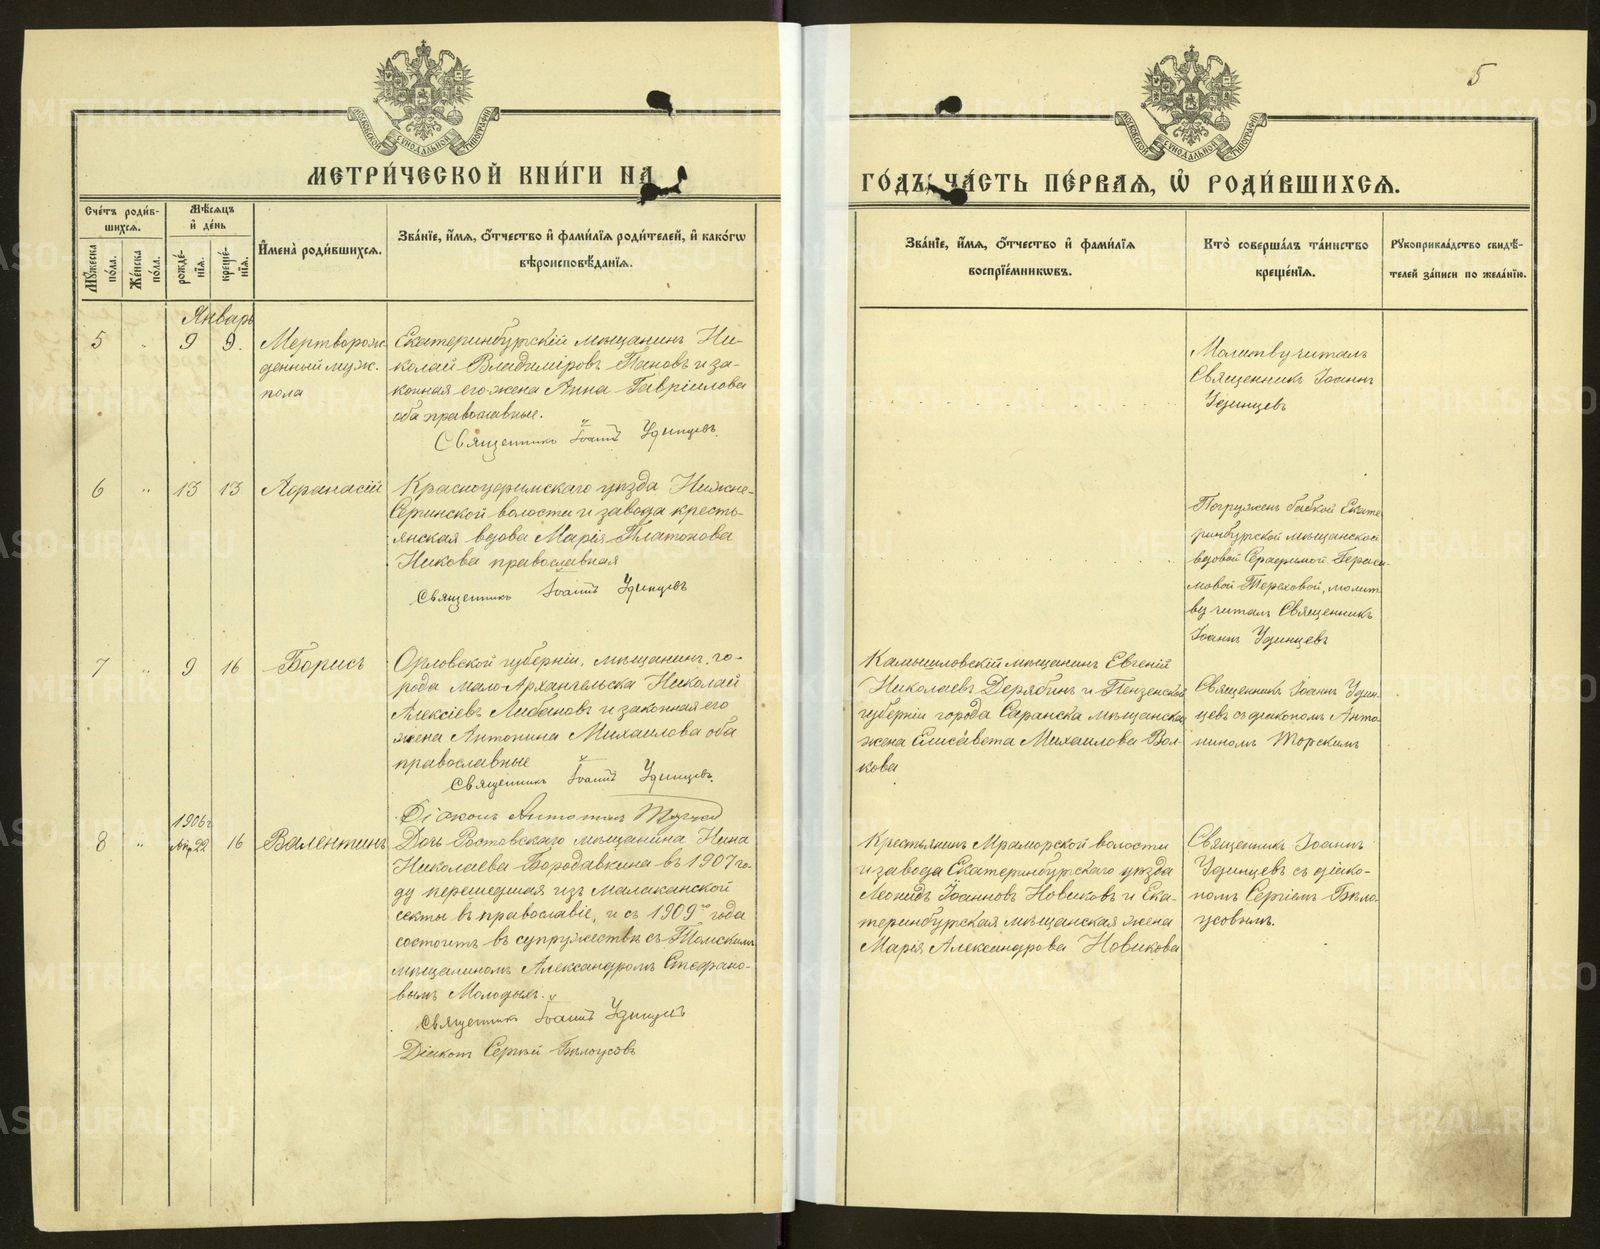 5
МОСКОВСКОЙ СѴНОДАЛЬНОЙ ТИПОГРАФІИ
МОСКОВСКОЙ СѴНОДАЛЬНОЙ ТИПОГРАФІИ
МЕТРИ́ЧЕСКОЙ КНИ́ГИ НА
ГО́ДЪ, ЧА́СТЬ ПЕ́РВАЯ, Ѡ҆ РОДИ́ВШИХСЯ.
Сче́тъ роди́в-
шихся.
Мꙋ́жеска по́ла.
Же́нска по́ла.
Мѣ́сяцъ
и҆ де́нь
рожде́-нїя.
креще́-нїя.
И҆мена̀ роди́вшихся.
Зва́нїе, и҆́мя, о҆́тчество и҆ фами́лїя роди́телей, и҆ како́гѡ
вѣроисповѣ́данїя.
Зва́нїе, и҆́мя, о҆́тчество и҆ фами́лїя
воспрїе́мникѡвъ.
Кто̀ соверша́лъ та́инство
креще́нїя.
Рꙋкоприкла́дство свидѣ́-
телей за́писи по жела́нїю.
Январь
5 " 9 9.
Мертворож-
денный муж.
пола
Екатеринбургскій мѣщанинъ Ни-
колай Владиміровъ Пановъ и за-
конная его жена Анна Гавріилова
оба православные.
Священникъ Іоаннъ Удинцевъ.
Молитву читалъ
Священникъ Іоаннъ
Удинцевъ
6 " 13 13
Афанасій
Красноуфимскаго уѣзда Нижне-
Сергинской волости и завода кресть-
янская вдова Марія Платонова
православная
Священникъ Іоаннъ Удинцевъ
Погружен бабкой Екате-
ринбургской мѣщанской
вдовой Серафимой Гераси-
мовой Тереховой, молит
ву читалъ Священникъ
Іоаннъ Удинцевъ
7 " 9 16
Борисъ
Орловской губерніи, мѣщанинъ го-
рода Мало-Архангельска Николай
Алексіевъ Либановъ и законная его
жена Антонина Михаилова оба
православные
Священникъ Іоаннъ Удинцевъ.
Діаконъ Антонинъ
Камышловскій мѣщанинъ Евгеній
Николаевъ Дерябинъ и Пензенской
губерніи города Саранска мѣщанская
жена Елисавета Михаилова Вол-
кова
Священникъ Іоаннъ Удин-
цевъ съ діакономъ Анто-
ниномъ Торскимъ
1906 г
Апр 22
8 " 16
Валентинъ
Дочь Ростовскаго мѣщанина Нина
Николаева Бородавкина въ 1907 го-
ду перешедшая изъ Малаканской
секты въ православіе, и съ 1909 го года
состоитъ въ супружествѣ съ Томскимъ
мѣщаниномъ Александромъ Стефано-
вымъ Молодыхъ.
Священникъ Іоаннъ Удинцевъ
Діаконъ Сергѣй Бѣлоусовъ
Крестьянинъ Мраморской волости
и завода Екатеринбургскаго уѣзда
Леонидъ Іоанновъ Новиковъ и Ека-
теринбургская мѣщанская жена
Марія Александрова Новикова
Священникъ Іоаннъ
Удинцевъ съ діако-
номъ Сергіемъ Бѣло-
усовымъ.
METRIKI.GASO-URAL.RU